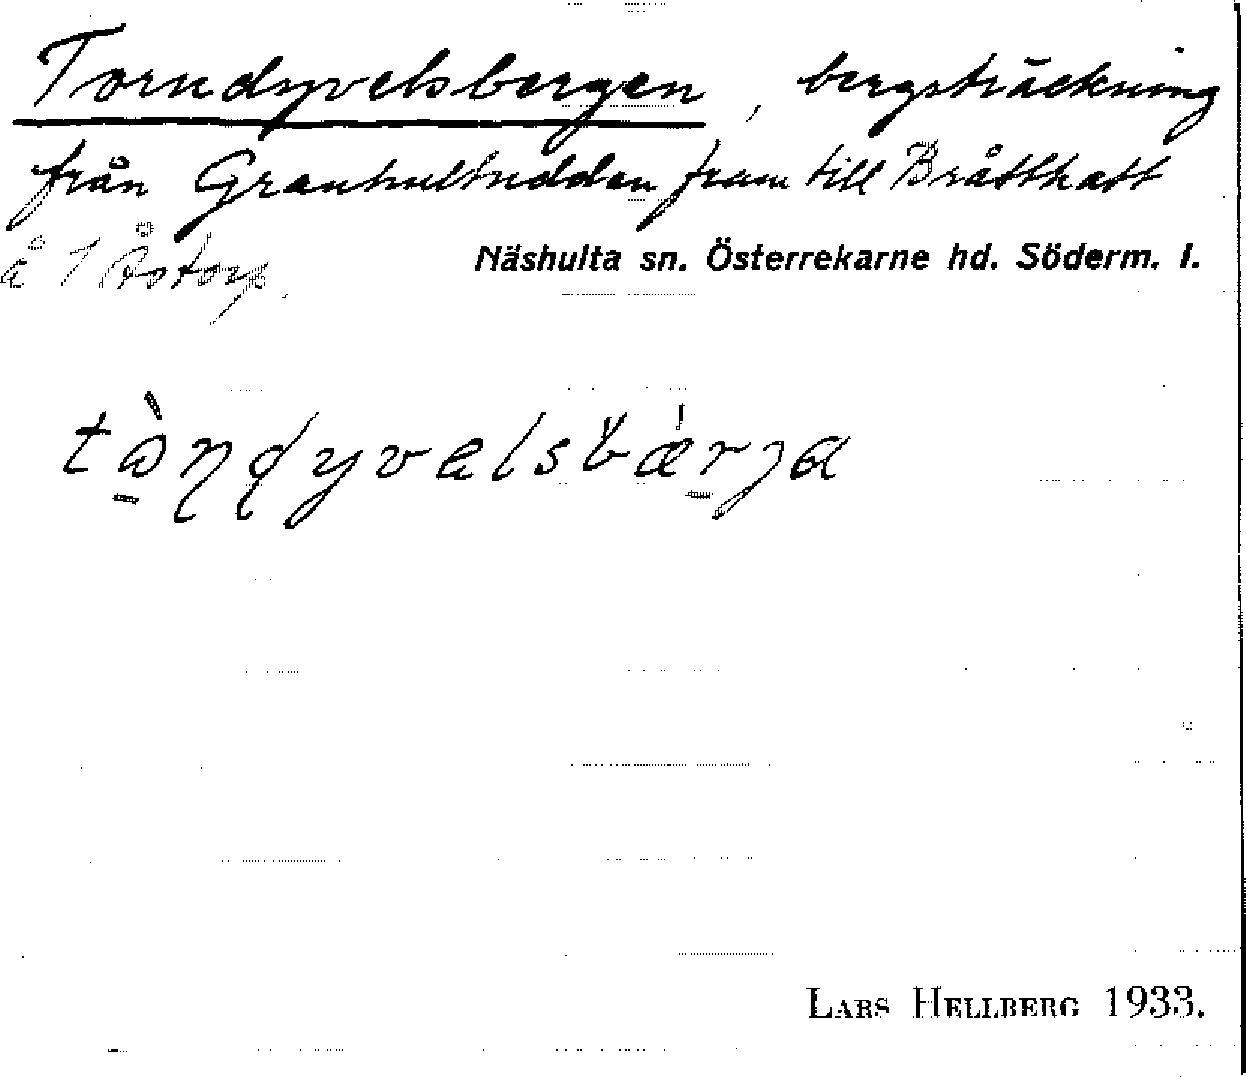 Torndyvelsbergen, bergsträckning
från Granhultsudden fram till Bråtthatt
å 1 Åstorp.
Näshulta sn. Österrekarne hd. Söderm. l.
LARS HELLBERG 1933.